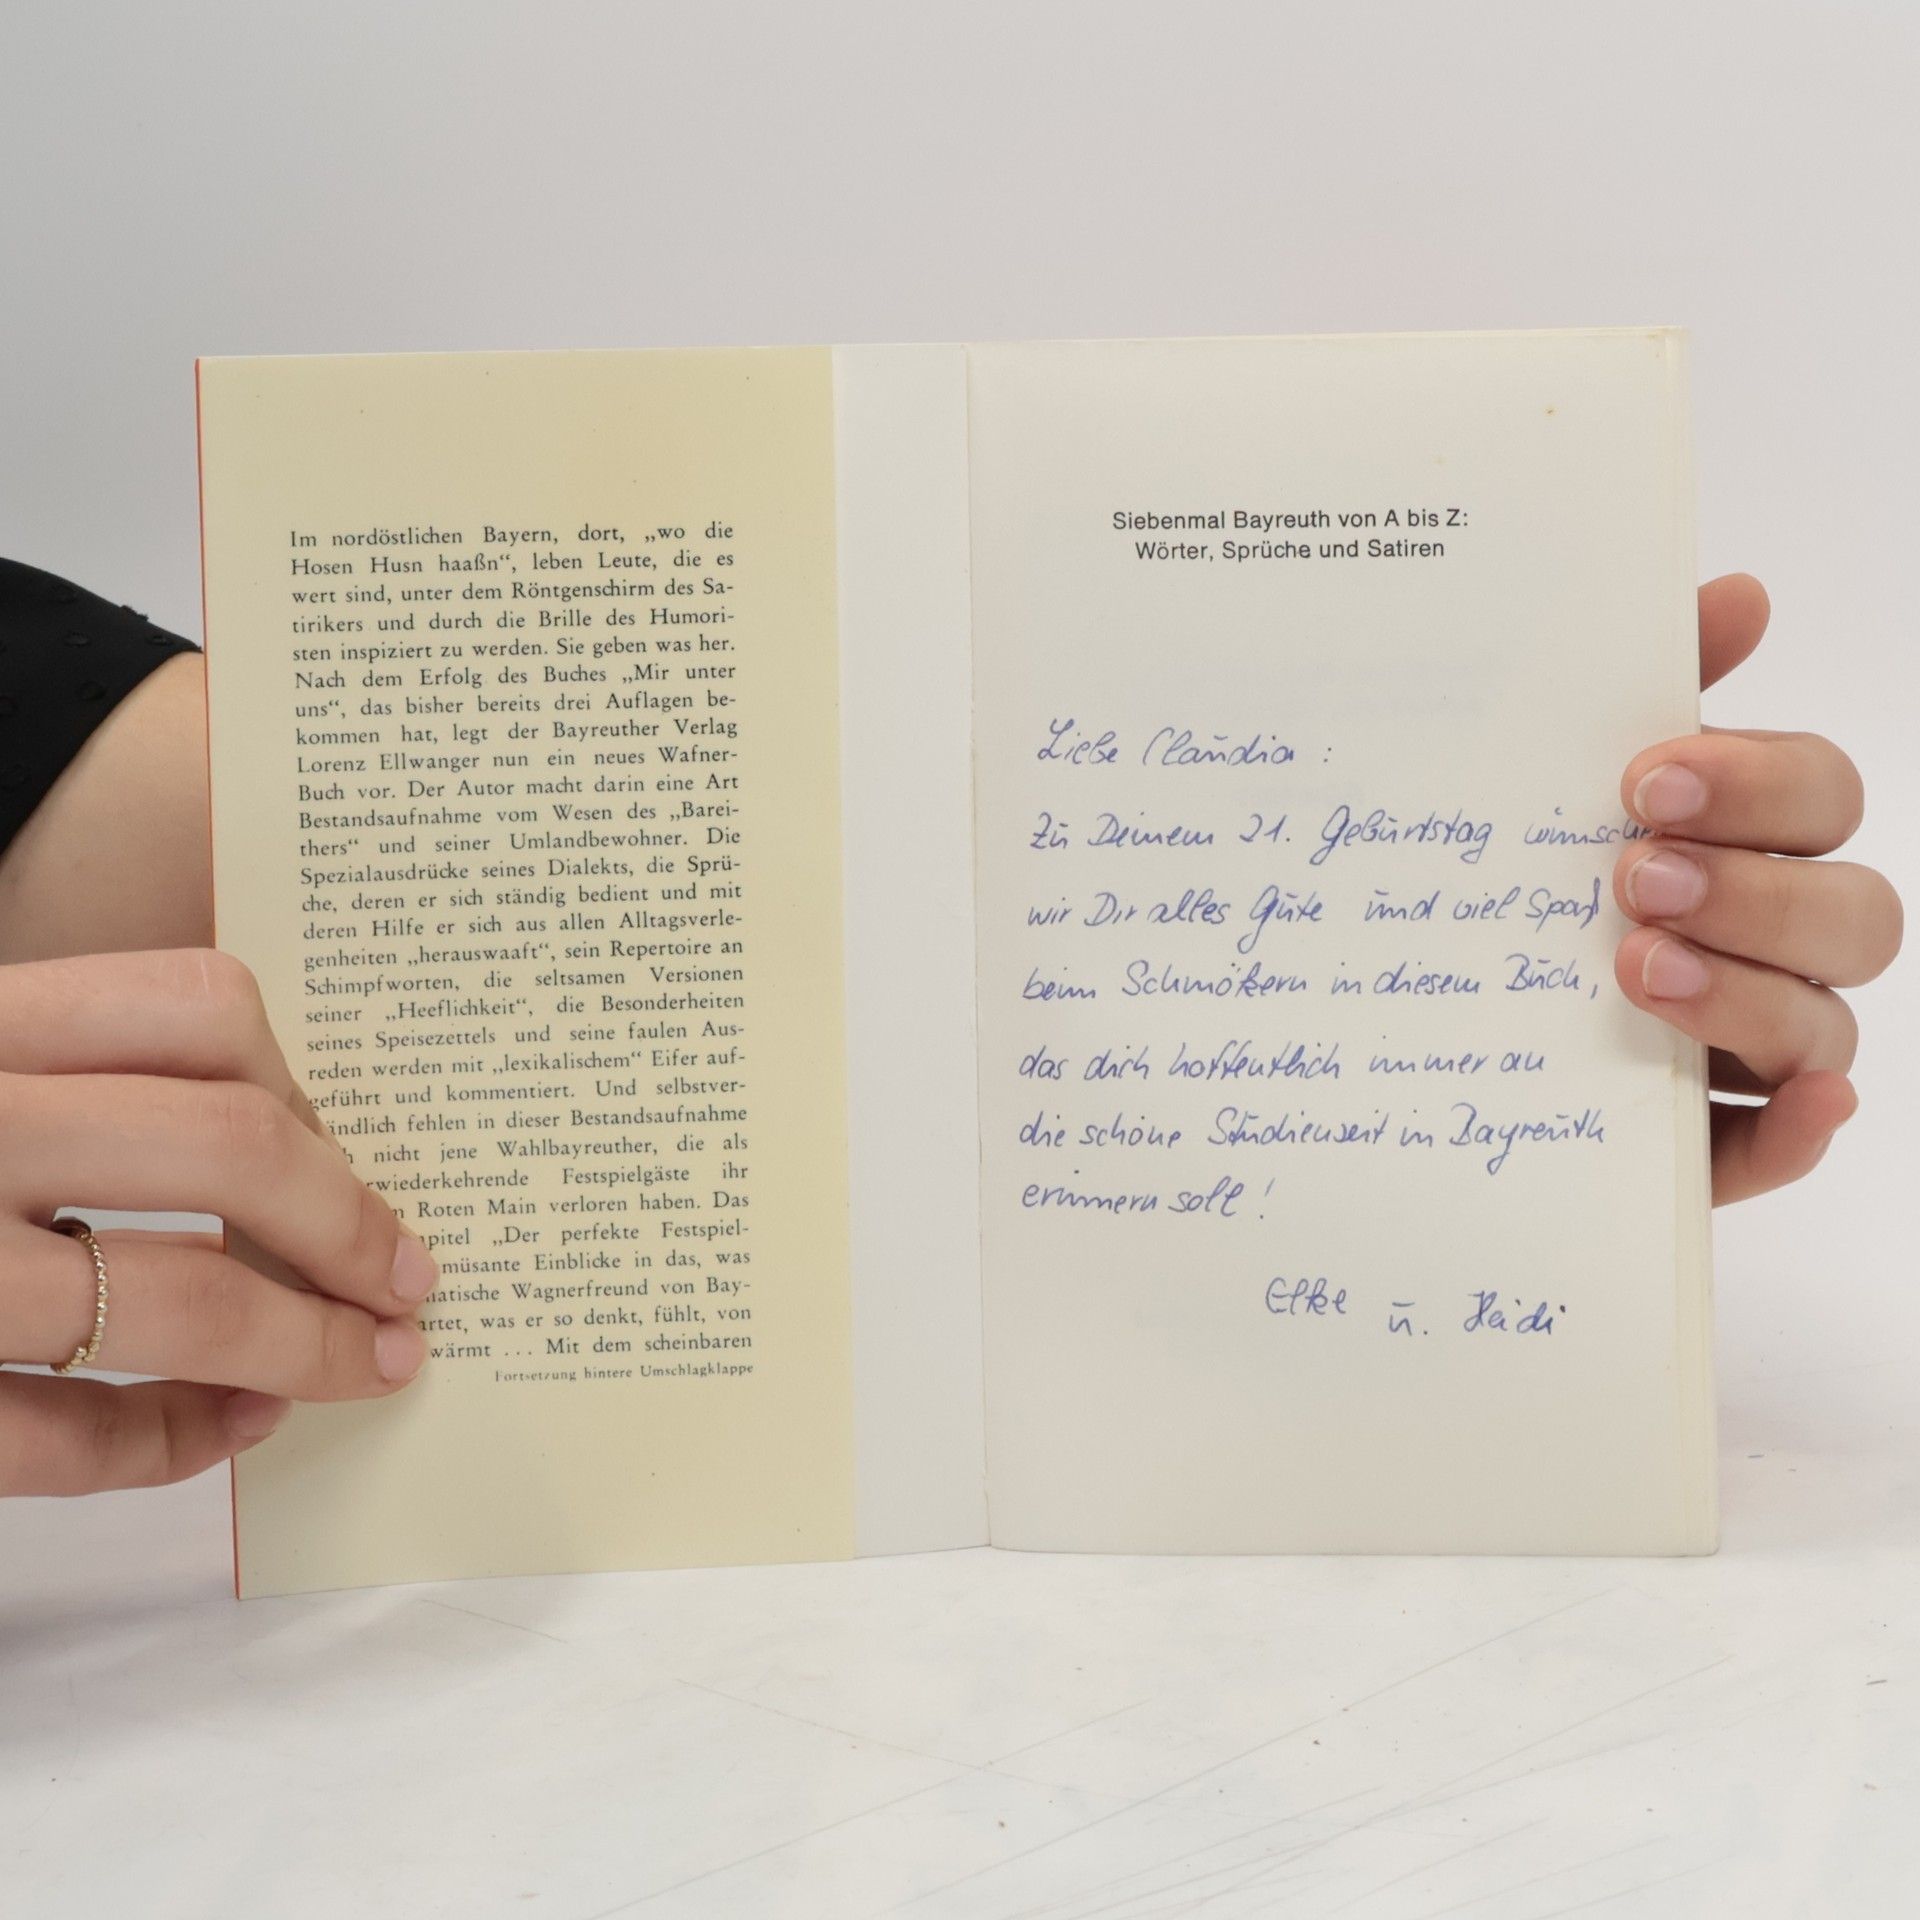 Im nordöstlichen Bayern, dort, „wo die
Hosen Husn haaßn“, leben Leute, die es
wert sind, unter dem Röntgenschirm des Sa-
tirikers und durch die Brille des Humori-
sten inspiziert zu werden. Sie geben was her.
Nach dem Erfolg des Buches „Mir unter
uns“, das bisher bereits drei Auflagen be-
kommen hat, legt der Bayreuther Verlag
Lorenz Ellwanger nun ein neues Wafner-
Buch vor. Der Autor macht darin eine Art
Bestandsaufnahme vom Wesen des „Barei-
thers“ und seiner Umlandbewohner. Die
Spezialausdrücke seines Dialekts, die Sprü-
che, deren er sich ständig bedient und mit
deren Hilfe er sich aus allen Alltagsverle-
genheiten „herauswaaft“, sein Repertoire an
Schimpfworten, die seltsamen Versionen
seiner „Heeflichkeit“, die Besonderheiten
seines Speisezettels und seine faulen Aus-
reden werden mit „lexikalischem“ Eifer auf-
geführt und kommentiert. Und selbstver-
ändlich fehlen in dieser Bestandsaufnahme
h nicht jene Wahlbayreuther, die als
rwiederkehrende Festspielgäste ihr
n Roten Main verloren haben. Das
apitel „Der perfekte Festspiel-
müsante Einblicke in das, was
natische Wagnerfreund von Bay-
artet, was er so denkt, fühlt, von
wärmt ... Mit dem scheinbaren
Fortsetzung hintere Umschlagklappe
Siebenmal Bayreuth von A bis Z:
Wörter, Sprüche und Satiren
Liebe Claudia :
Zu Deinem 21. Geburtstag wünsch
wir Dir alles Gute und viel Spaß
beim Schmökern in diesem Buch,
das dich hoffentlich immer an
die schöne Studienzeit in Bayreuth
erinnern soll !
Elke u. Heidi